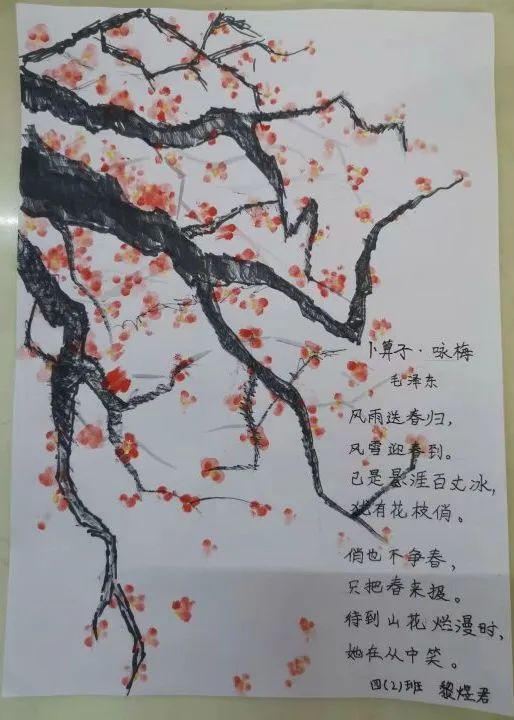 卜算子·咏梅
毛泽东
风雨送春归，
风雪迎春到。
已是悬涯百丈冰，
犹有花枝俏。
俏也不争春，
只把春来报。
待到山花烂漫时，
她在从中笑。
四(2)班 黎煜君